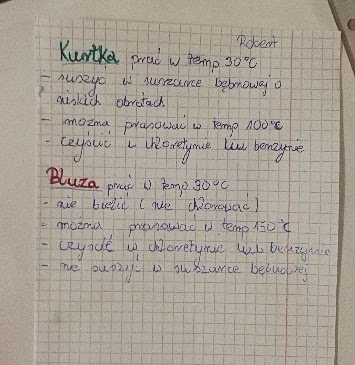 Robert
Kurtka prać w temp 30°C
- suszyć w suszarce bębnowej o
niskich obrotach
- można prasować w temp 100°C
- czyścić w chloretynie lub benzynie
Bluza prać w temp 30°C
- nie bielić (nie chlorować)
- można prasować w temp 150°C
- czyścić w chloretynie lub benzynie
- nie suszyć w suszarce bębnowej